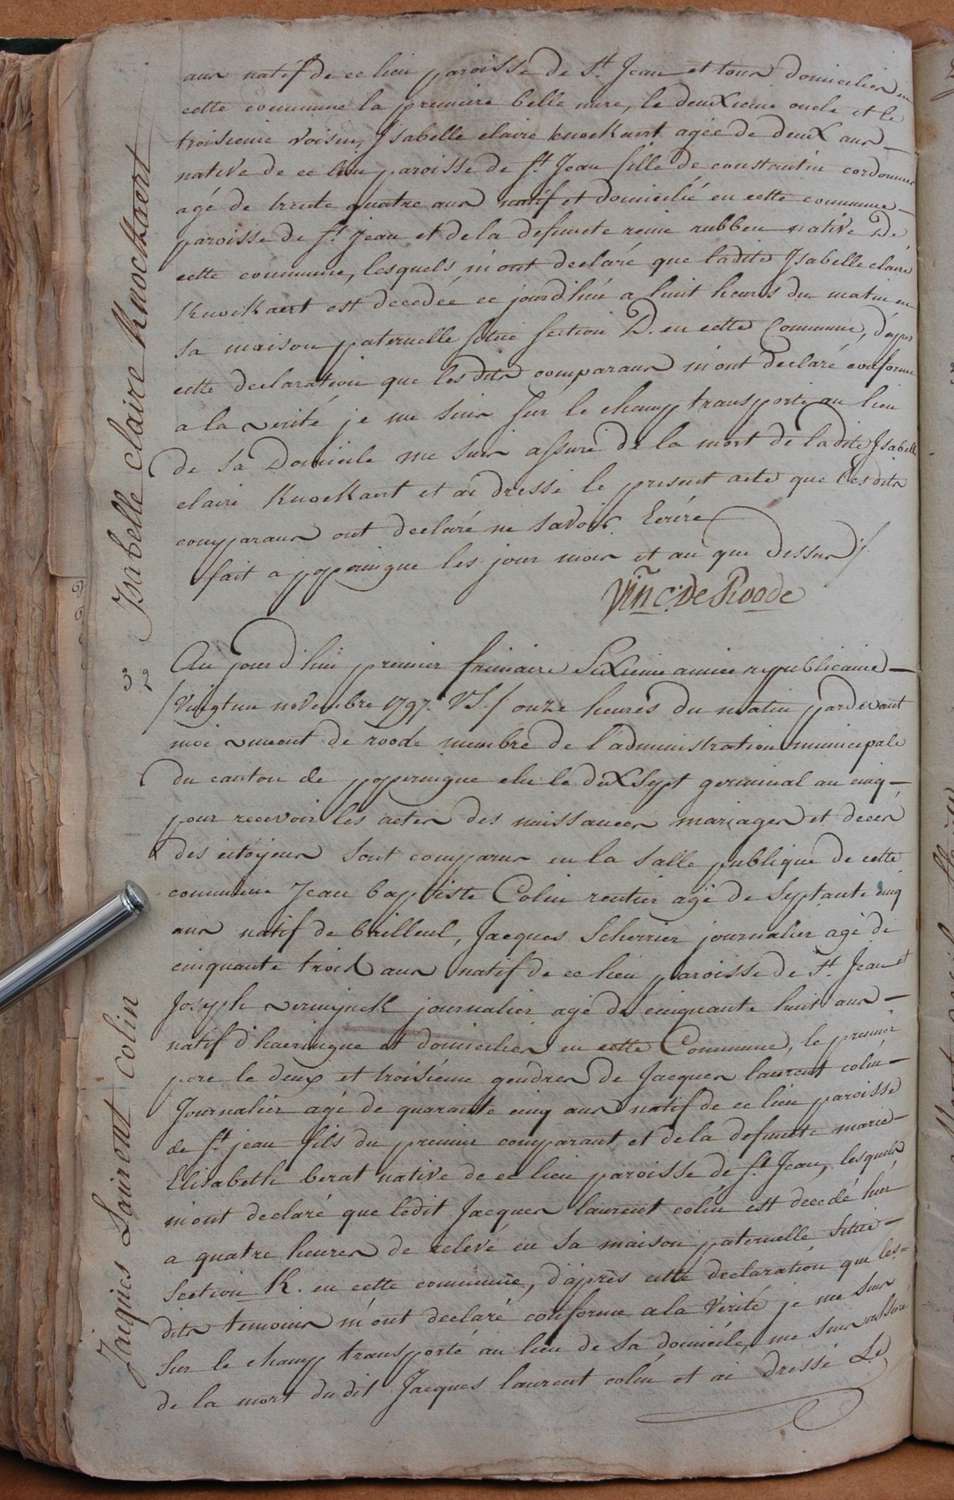 ans natif de ce lieu paroisse de St. Jean et tous domicilies en
cette commune la premiere belle mere, le deuxieme oncle et le
troisieme voisin, Isabelle claire knockaert agée de deux ans
native de ce lieu paroisse de St. Jean fille de constantin cordonnier
agé de trente quatre ans natif et domicilié en cette commune
paroisse de St. Jean et de la defuncte reine rubben native De
cette commune, lesquels m'ont declaré que ladite Isabelle claire
Knockaert est decedée ce jourd'hui a huit heures du matin en
sa maison paternelle située section D. en cette Commune, d'apres
cette declaration que les dits comparans m'ont declaré conforme
a la verité je me suis sur le champ transporté au lieu
de sa Domicile me suis assuré de la mort de ladite Isabelle
claire Knockaert et ai dressé le present acte que les dits
comparans ont declaré ne savoir Ecrire
fait a popperingue les jour mois et an que dessus
Vinc. De Roode
Isabelle claire Knockaert
Au jourd'hui premier frimaire Sixieme année republicaine
/Vingt un novembre 1797. VS./ onze heures du matin pardevant
moi vincent de roode membre de l'administration municipale
du canton de popperingue elu le dix sept germinal an cinq
pour recevoir les actes des naissances mariages et deces
des citoyens sont comparus en la salle publique de cette
commune Jean baptiste Colin rentier agé de septante cinq
ans natif de bailleul, Jacques Scherrier journalier agé de
cinquante trois ans natif de ce lieu paroisse de St. Jean et
Joseph vermynck journalier agé de cinquante huit ans
natif d'haeringue et domicilies en cette Commune, le premier
pere le deux et troisieme gendres de Jacques laurent colin
Journalier agé de quarante cinq ans natif de ce lieu paroisse
de St. jean fils du premier comparant et de la defuncte marie
Elisabeth berat native de ce lieu paroisse de St. Jean, lesquels
m'ont declaré que ledit Jacques laurent colin est decedé hier
a quatre heures de relevé en sa maison paternelle située
section K. en cette commune, d'après cette declaration que les
dits temoins m'ont declaré conforme a la Verité je me suis
sur le champ transporté au lieu de sa domicile, me suis assuré
de la mort dudit Jacques laurent colin et ai dressé Le
Jacques Laurent colin